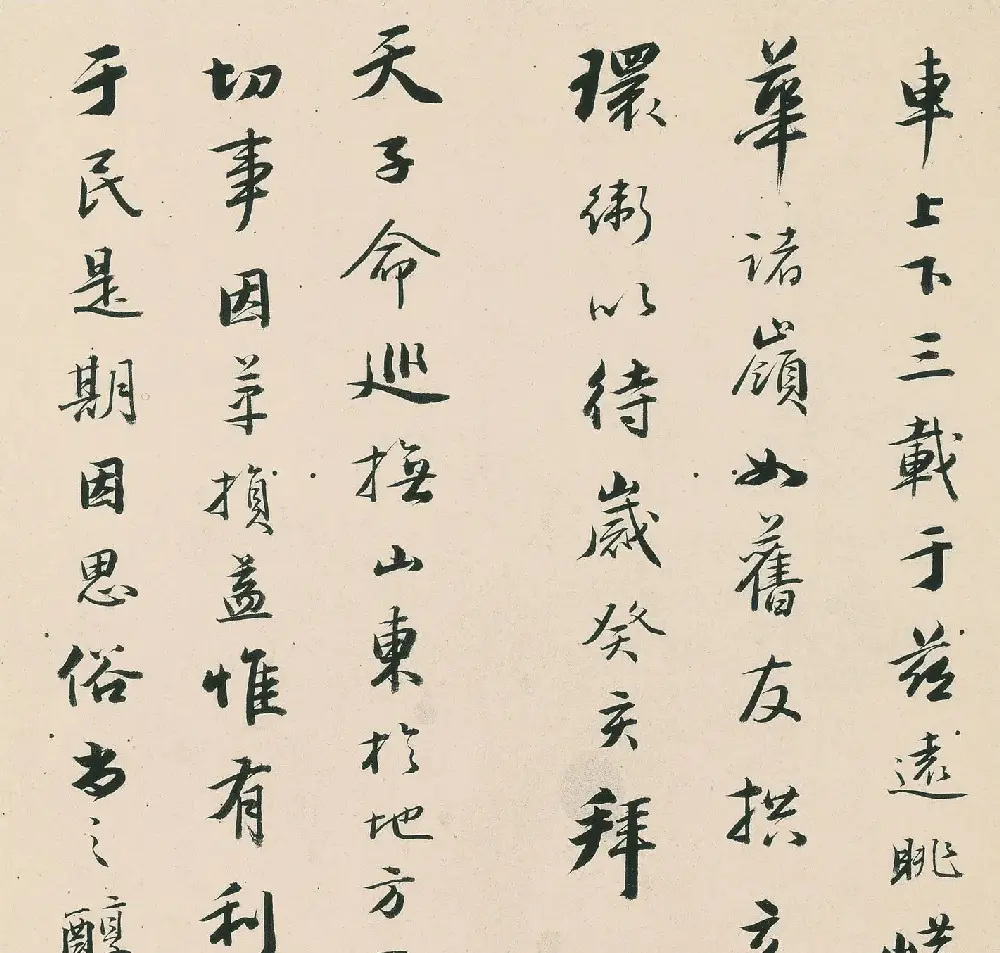 車上下三載于茲遠眺
華諸嶺如舊友拱立
環衛以待歲癸亥拜
天子命巡撫山東於地方
切事因革損益惟有利
于民是期因思俗尚之醇